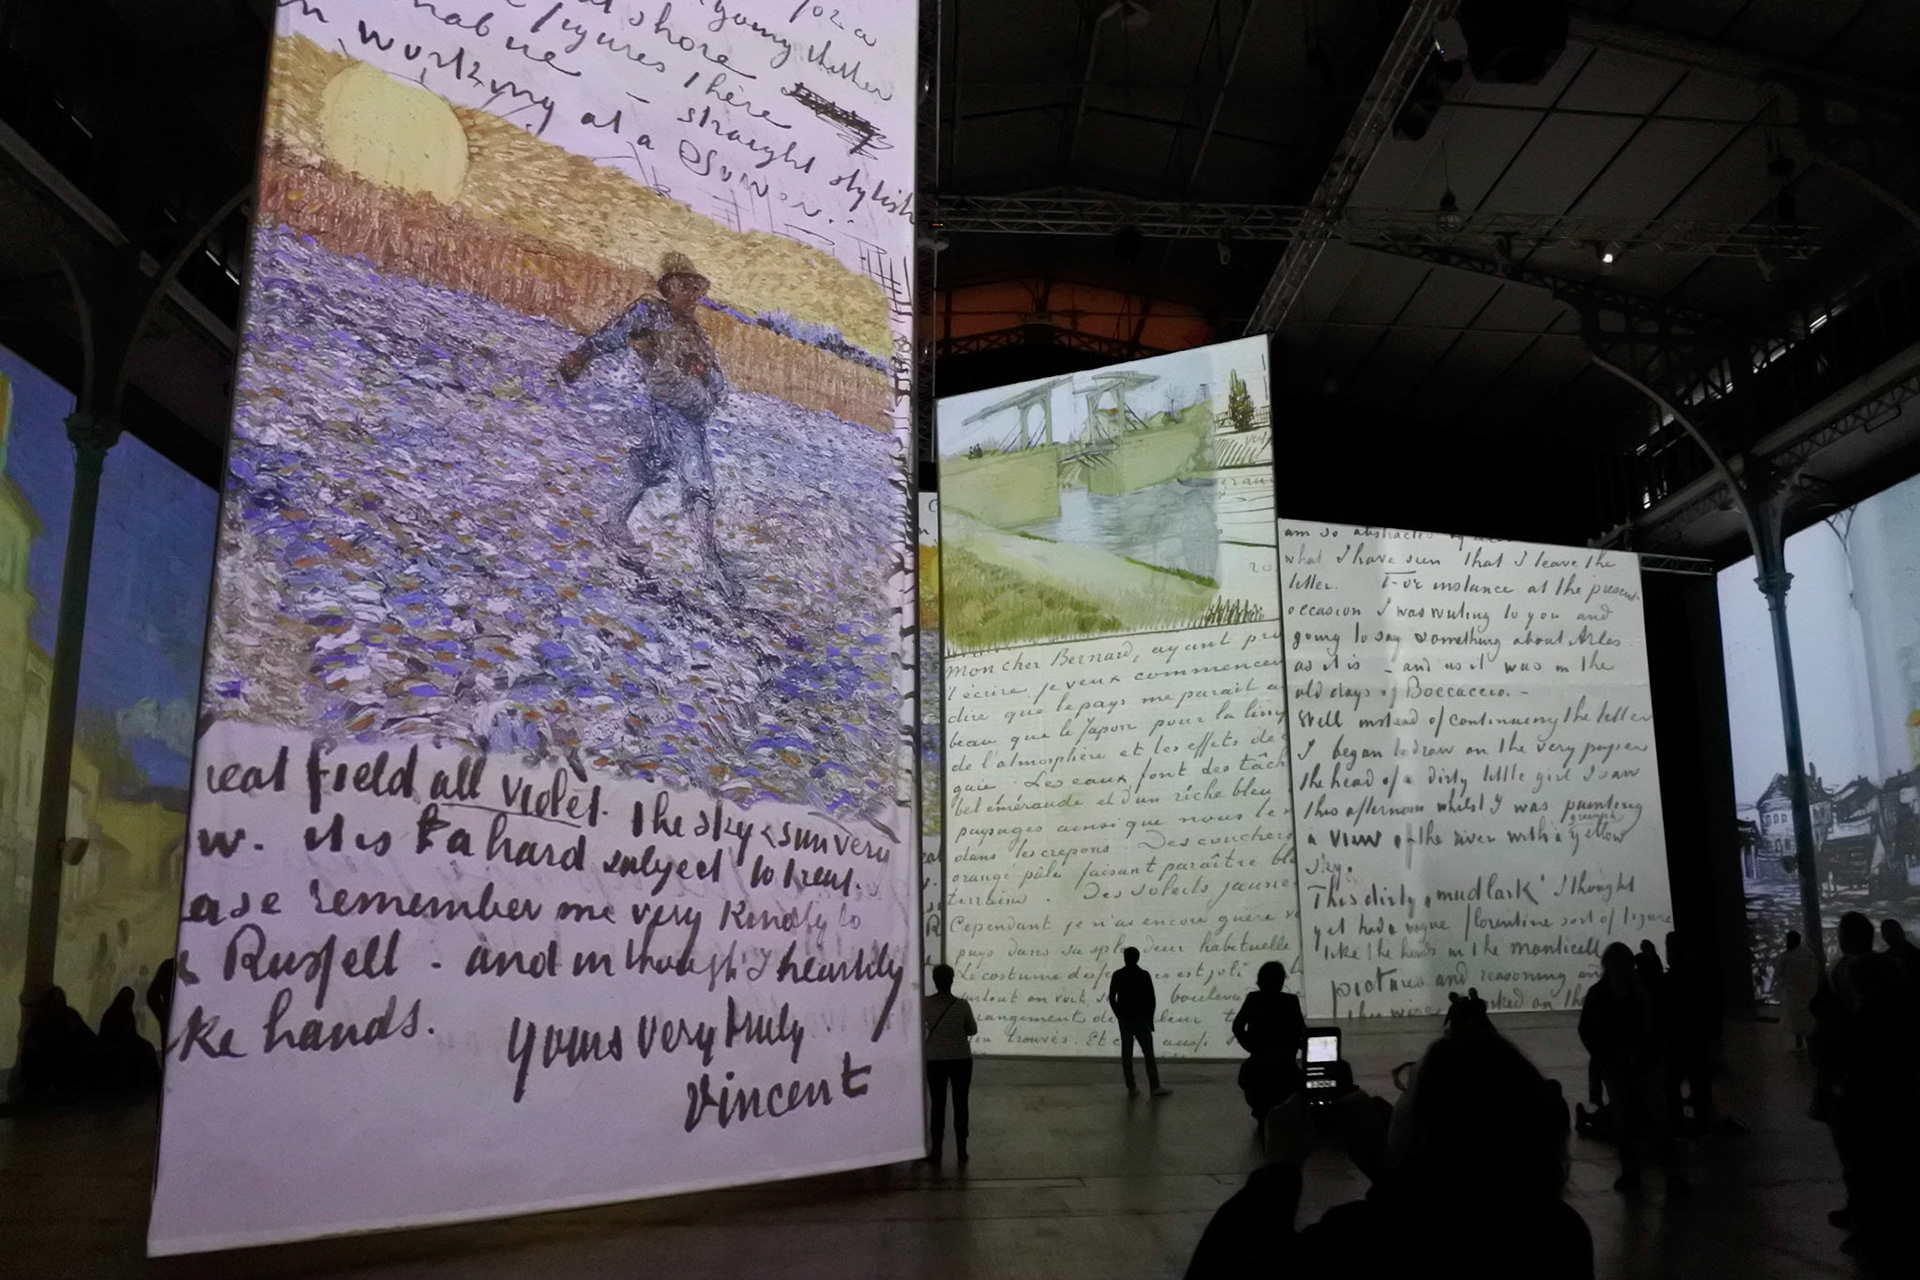 for a
young
at shore
nab ne figures there
straight stylish
working at a Sower..
eat field all violet. The sky & sun very
w. it is a hard subject to treat.
ase remember me very Kindly to
Russell - and in thought I heartily
ke hands.
yours very truly
Vincent
Mon cher Bernard, ayant pr
t'écrire je veux commencer
dire que le pays me parait a
beau que le Japon pour la lim
de l'atmosphère et les effets de
gaie. Les eaux font des tâch
bel émeraude et d'un riche bleu
paysages ainsi que nous le
dans les crepons. Des couchers
orangé pâle faisant paraître ble
terrains. Des soleils jaunes
Cependant je n'ai encore guère v
pays dans sa splendeur habituelle
Le costume des fe es est joli
surtout on voit, s boulevar
rangement de leur t
en trouvés. Et aussi
am so abstracted
what I have seen that I leave the
letter. For instance at the present
occasion I was writing to you and
going to say something about Arles
as it is - and as it was in the
old days of Boccaccio. -
Well instead of continuing the letter
I began to draw on the very paper
the head of a dirty little girl I saw
this afternoon whilst I was painting
a view of the river with a greenish yellow
sky.
This dirty 'mudlark' I thought
yet had a vague florentine sort of figure
like the heads in the monticelli
pictures and reasoning an
this wise worked on the